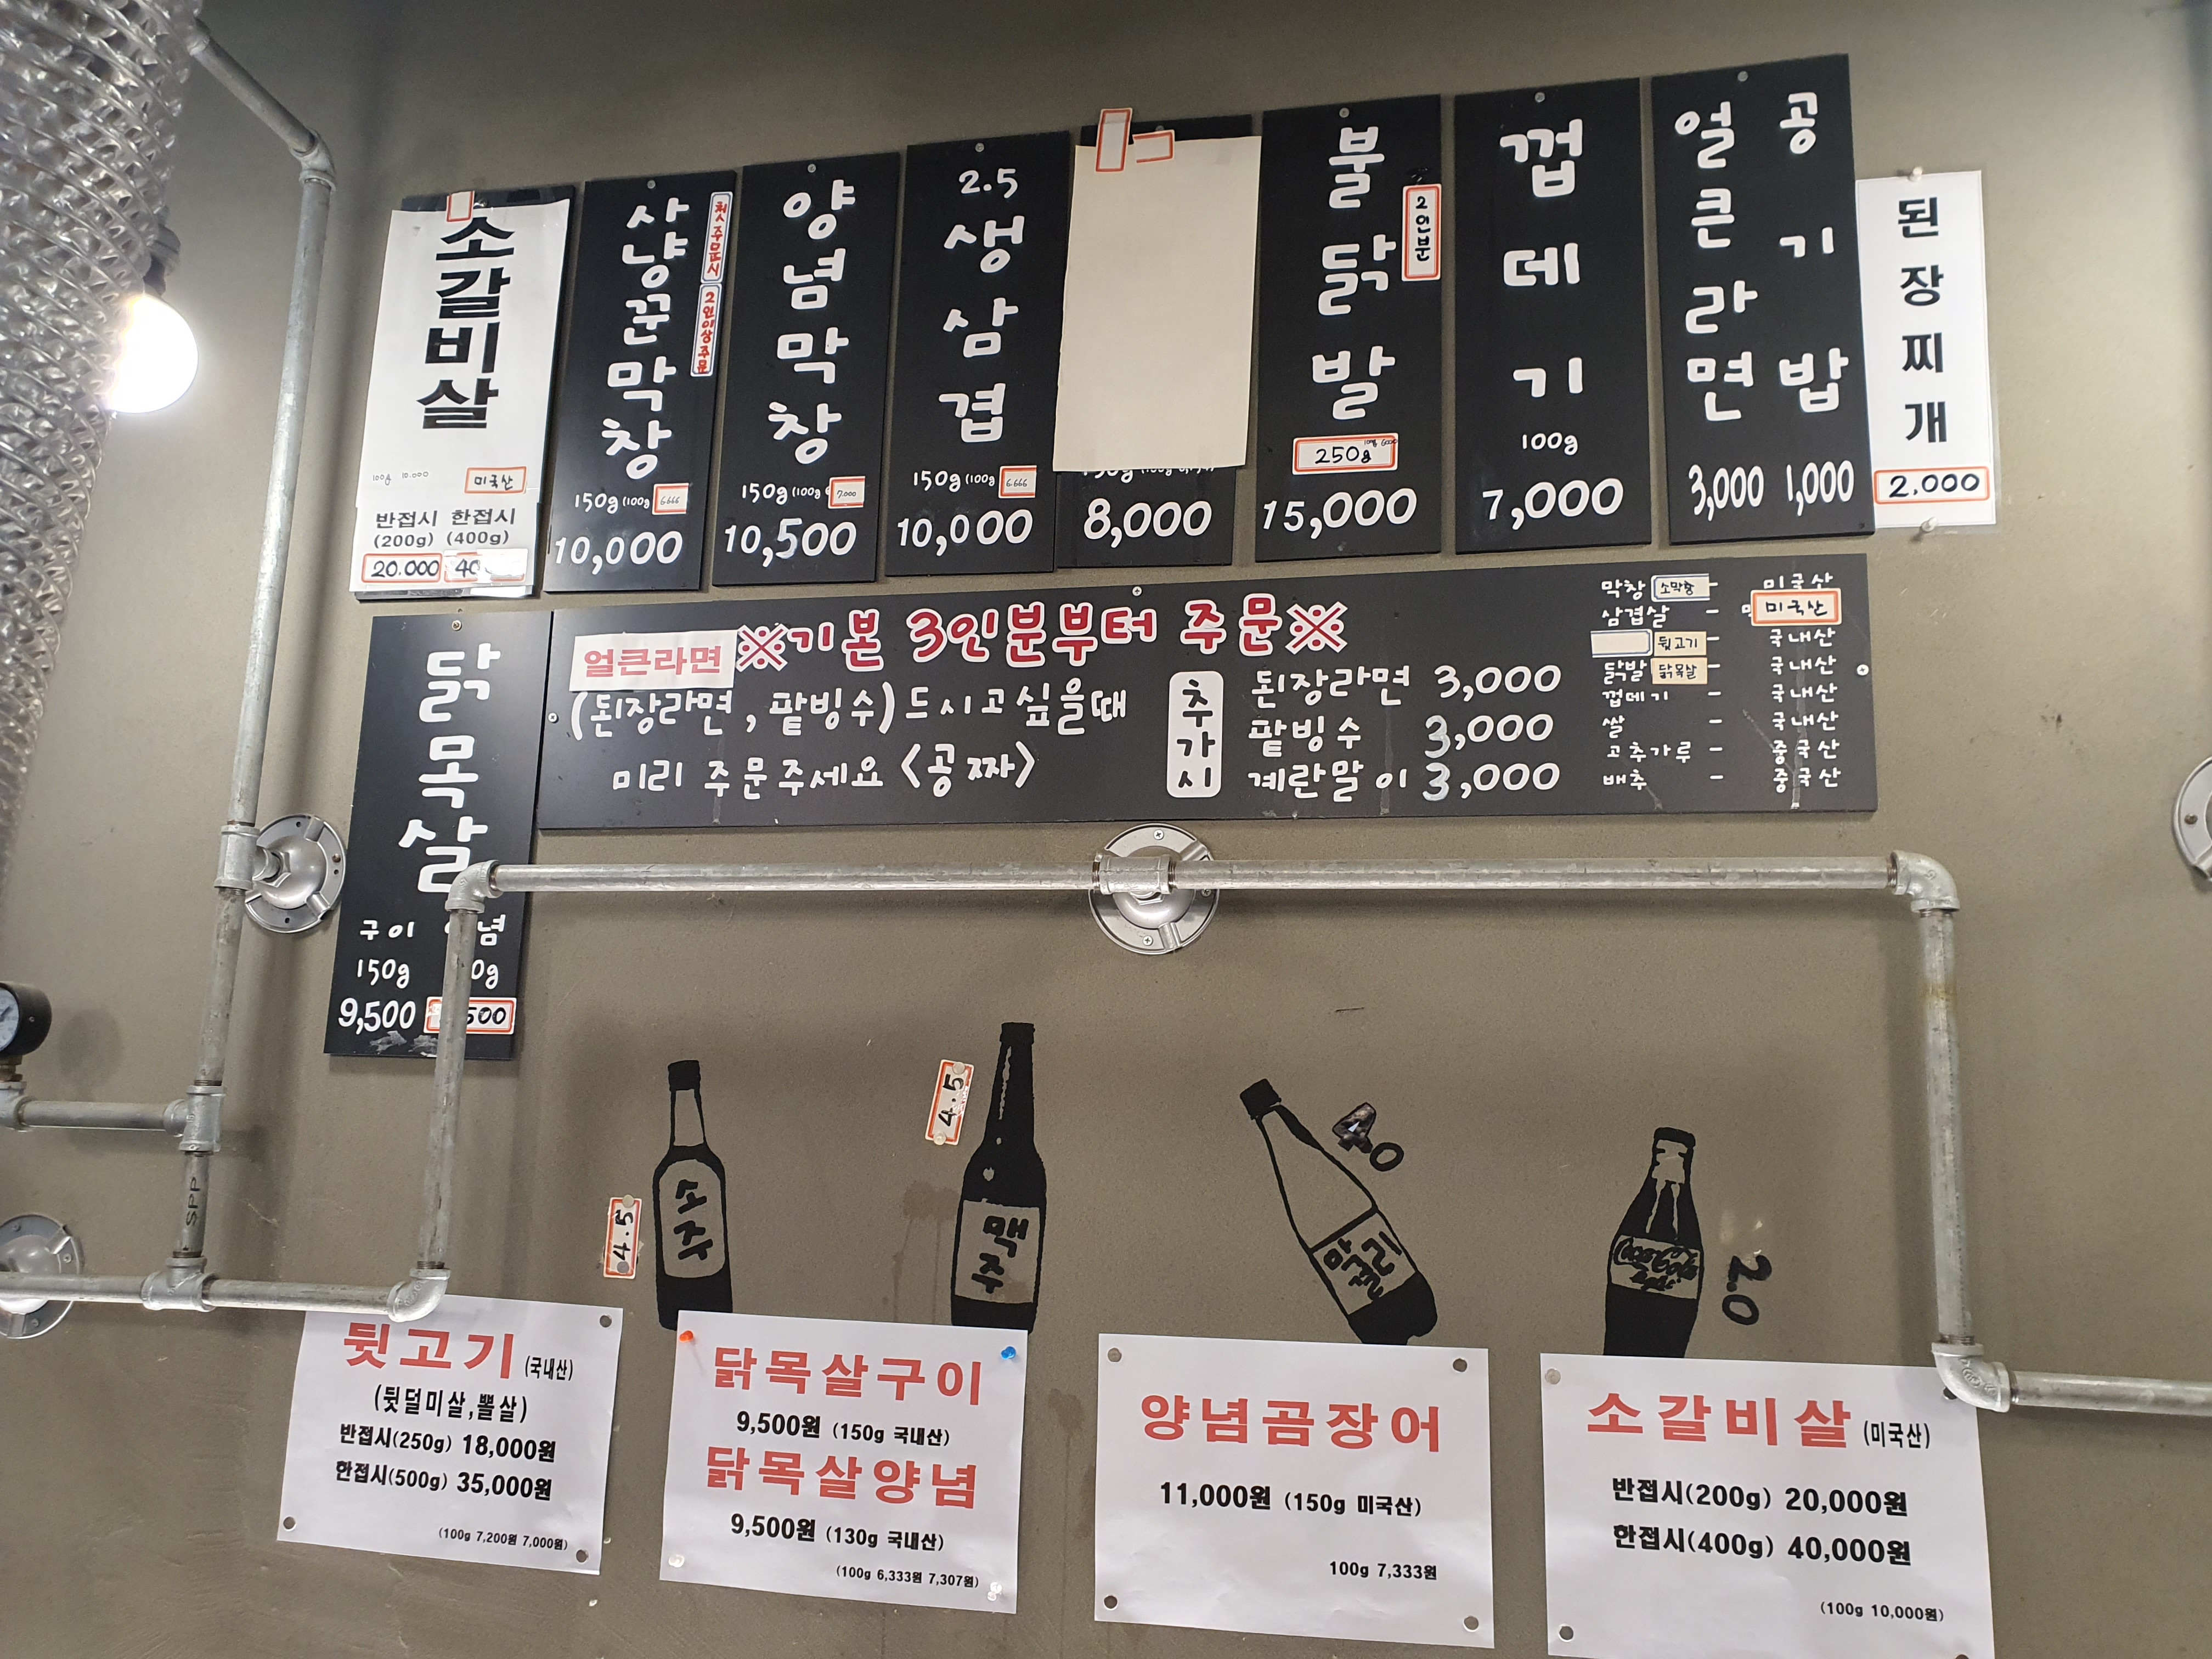 소갈비살
100g 10.000
미국산
반접시 한접시
(200g) (400g)
20.000 40
사냥꾼막창
첫주문시
2인이상주문
150g (100g 6.666
10,000
양념막창
150g (100g 7.000
10,500
2.5
생삼겹
150g (100g 6.666
10,000
8,000
불닭발
2인분
250g
15,000
껍데기
100g
7,000
얼큰라면
3,000
공기밥
1,000
된장찌개
2,000
닭목살
구이
150g
9,500
념
0g
500
얼큰라면
※기본 3인분부터 주문※
(된장라면, 팥빙수) 드시고싶을때
미리 주문주세요 <공짜>
추가시
된장라면 3,000
팥빙수 3,000
계란말이 3,000
막창 소막창 - 미국산
삼겹살 - 미국산
뒷고기 - 국내산
닭발 닭목살 - 국내산
껍데기 - 국내산
쌀 - 국내산
고추가루 - 중국산
배추 - 중국산
SPP
4.5
소주
4.5
맥주
4.0
막걸리
Coca-Cola
2.0
뒷고기 (국내산)
(뒷덜미살,뽈살)
반접시(250g) 18,000원
한접시(500g) 35,000원
(100g 7,200원 7,000원)
닭목살구이
9,500원 (150g 국내산)
닭목살양념
9,500원 (130g 국내산)
(100g 6,333원 7,307원)
양념곰장어
11,000원 (150g 미국산)
100g 7,333원
소갈비살 (미국산)
반접시(200g) 20,000원
한접시(400g) 40,000원
(100g 10,000원)